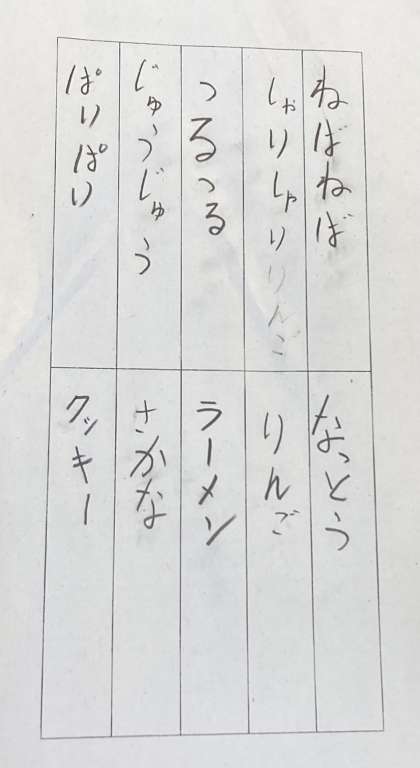 ねばねば
なっとう
しゃりしゃりりんご
りんご
つるつる
ラーメン
じゅうじゅう
さかな
ぱりぱり
クッキー